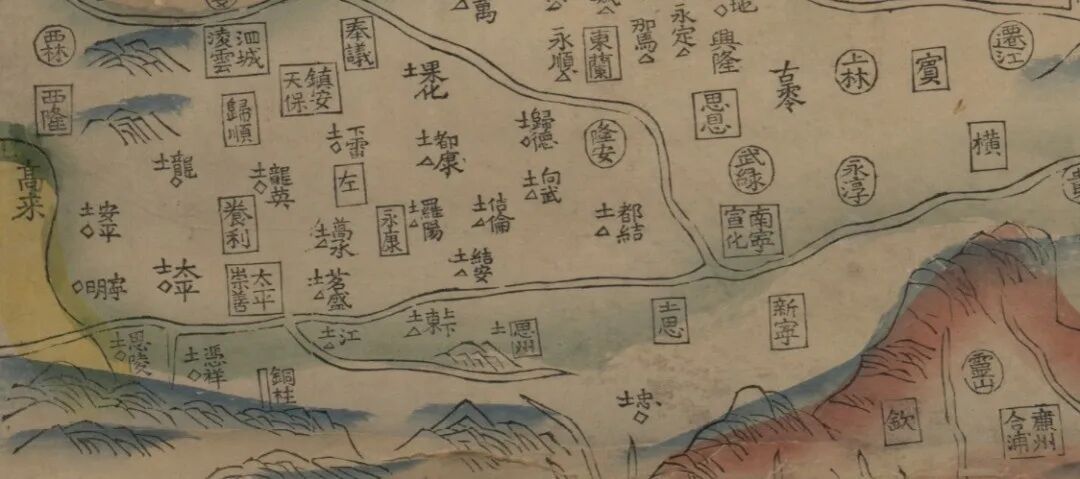 西林
西隆
泗城
淩雲
奉議
鎮安
天保
歸順
土果化
萬
永順
東蘭
那馬
永定
地
興隆
古零
上林
賓
遷江
思恩
土歸德
隆安
武緣
永淳
橫
貴
土下雷
土都康
土向武
左
土龍
土龍英
高來
土安平
養利
土萬承
永康
土羅陽
土佶倫
土都結
南寧
宣化
土結安
明寧
土太平
太平
崇善
土茗盛
土思陵
土憑祥
土江
土上下東
土思州
土思
新寧
銅柱
土忠
靈山
欽
廉州
合浦